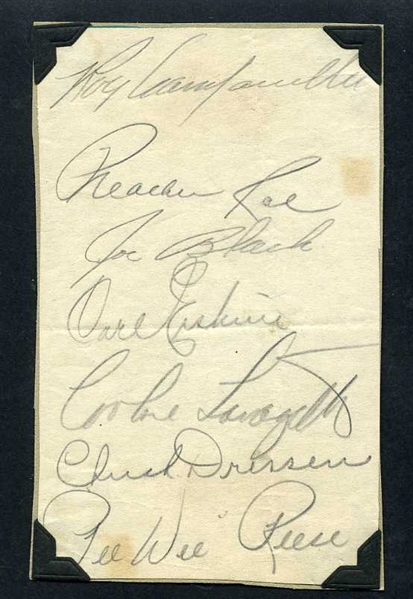 Roy Campanella
Preacher Roe
Joe Black
Carl Erskine
Cookie Lavagetto
Chuck Dressen
Pee Wee Reese